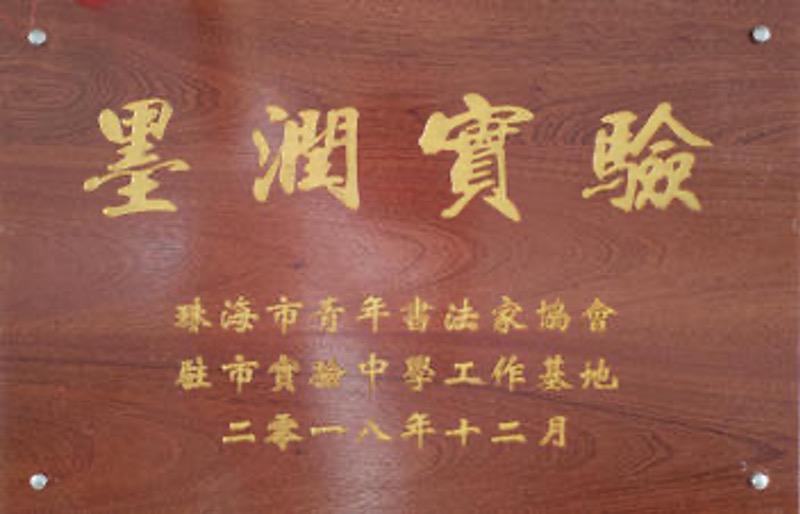 墨潤實驗
珠海市青年書法家協會
駐市實驗中學工作基地
二零一八年十二月